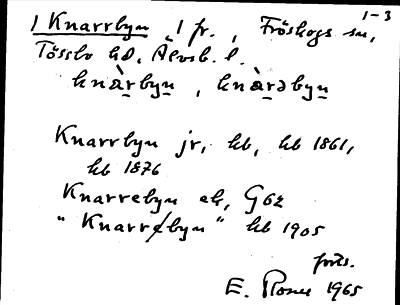 1-3
1 Knarrbyn 1 fr., Fröskogs sn,
Tössbo hd, Älvsb. l.
knàrbyn, knàrəbyn
Knarrbyn jr, kb, kb 1861,
kb 1876
Knarrebyn ek, G62
"Knarrebyn" kb 1905
forts.
E. 1965